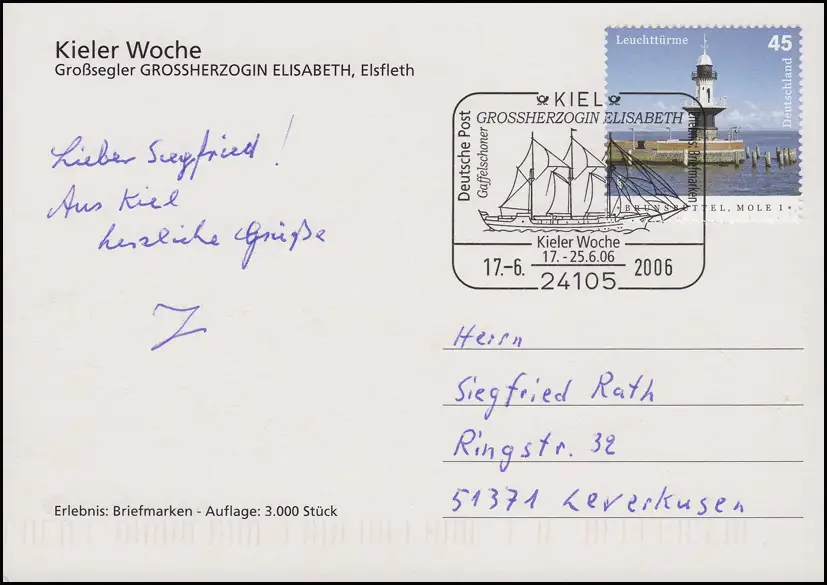 Kieler Woche
Großsegler GROSSHERZOGIN ELISABETH, Elsfleth
Lieber Siegfried!
Aus Kiel
herzliche Grüße
Erlebnis: Briefmarken - Auflage: 3.000 Stück
Leuchttürme 45
Deutschland
BRUNSBÜTTEL, MOLE 1
KIEL
GROSSHERZOGIN ELISABETH
Deutsche Post
Gaffelschoner
Erlebnis: Briefmarken
Kieler Woche
17. - 25.6.06
17.-6. 2006
24105
Herrn
Siegfried Rath
Ringstr. 32
51371 Leverkusen